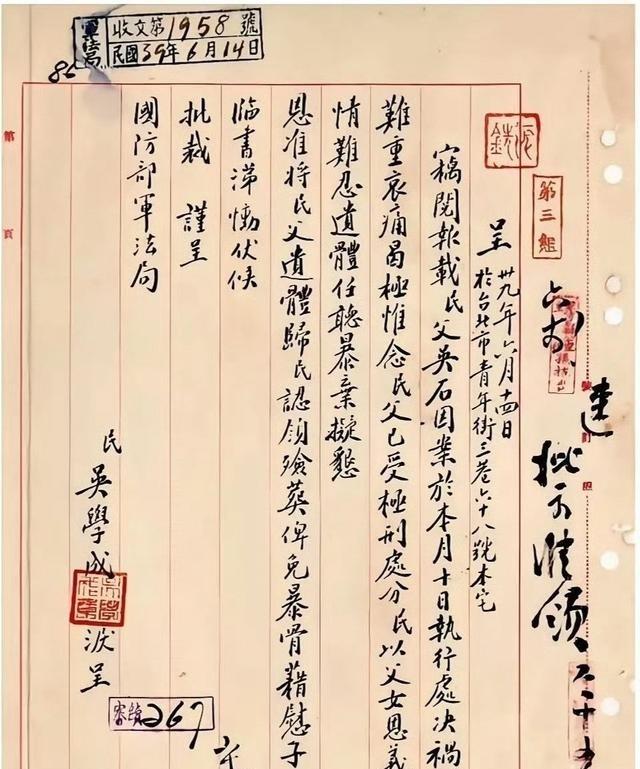 收文第1958號
民國39年6月14日
軍法局
86
第 頁
第三組
呈 卅九年六月十四日
於台北市青年街三巷六十八號本宅
竊閱報載民父吳石因業於本月十日執行處決禍
難重哀痛曷極惟念民父已受極刑處分民以父女恩義
情難忍遺體任聽暴棄擬懇
恩准將民父遺體歸民認領殮葬俾免暴骨藉慰子
臨書涕慟伏候
批裁 謹呈
國防部軍法局
民 吳學成 淚呈
267
速
批示准領